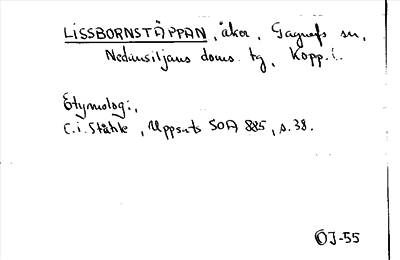 LISSBORNSTÄPPAN, åker, Gagnefs sn,
Nedansiljans doms. tg, Kopp. l.
Etymologi,
C. i. Ståhle, Uppsats SOA 885, s. 38.
OJ-55